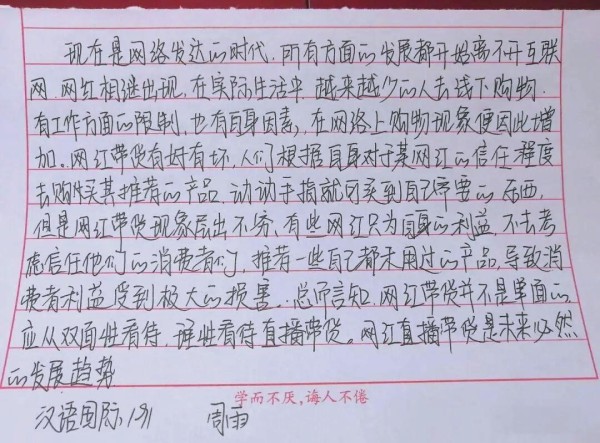 现在是网络发达的时代,所有方面的发展都开始离不开互联
网,网红相继出现,在实际生活中,越来越少的人去线下购物.
有工作方面的限制,也有自身因素,在网络上购物现象便因此增
加。网红带货有好有坏,人们根据自身对于某网红的信任程度
去购买其推荐的产品,动动手指就可买到自己需要的东西,
但是网红带货现象层出不穷,有些网红只为自身的利益,不去考
虑信任他们的消费者们,推荐一些自己都未用过的产品,导致消
费者利益受到极大的损害.总而言知,网红带货并不是单面的
应从双面性看待,理性看待直播带货。网红直播带货是未来必然
的发展趋势
学而不厌,诲人不倦
汉语国际191 周雨